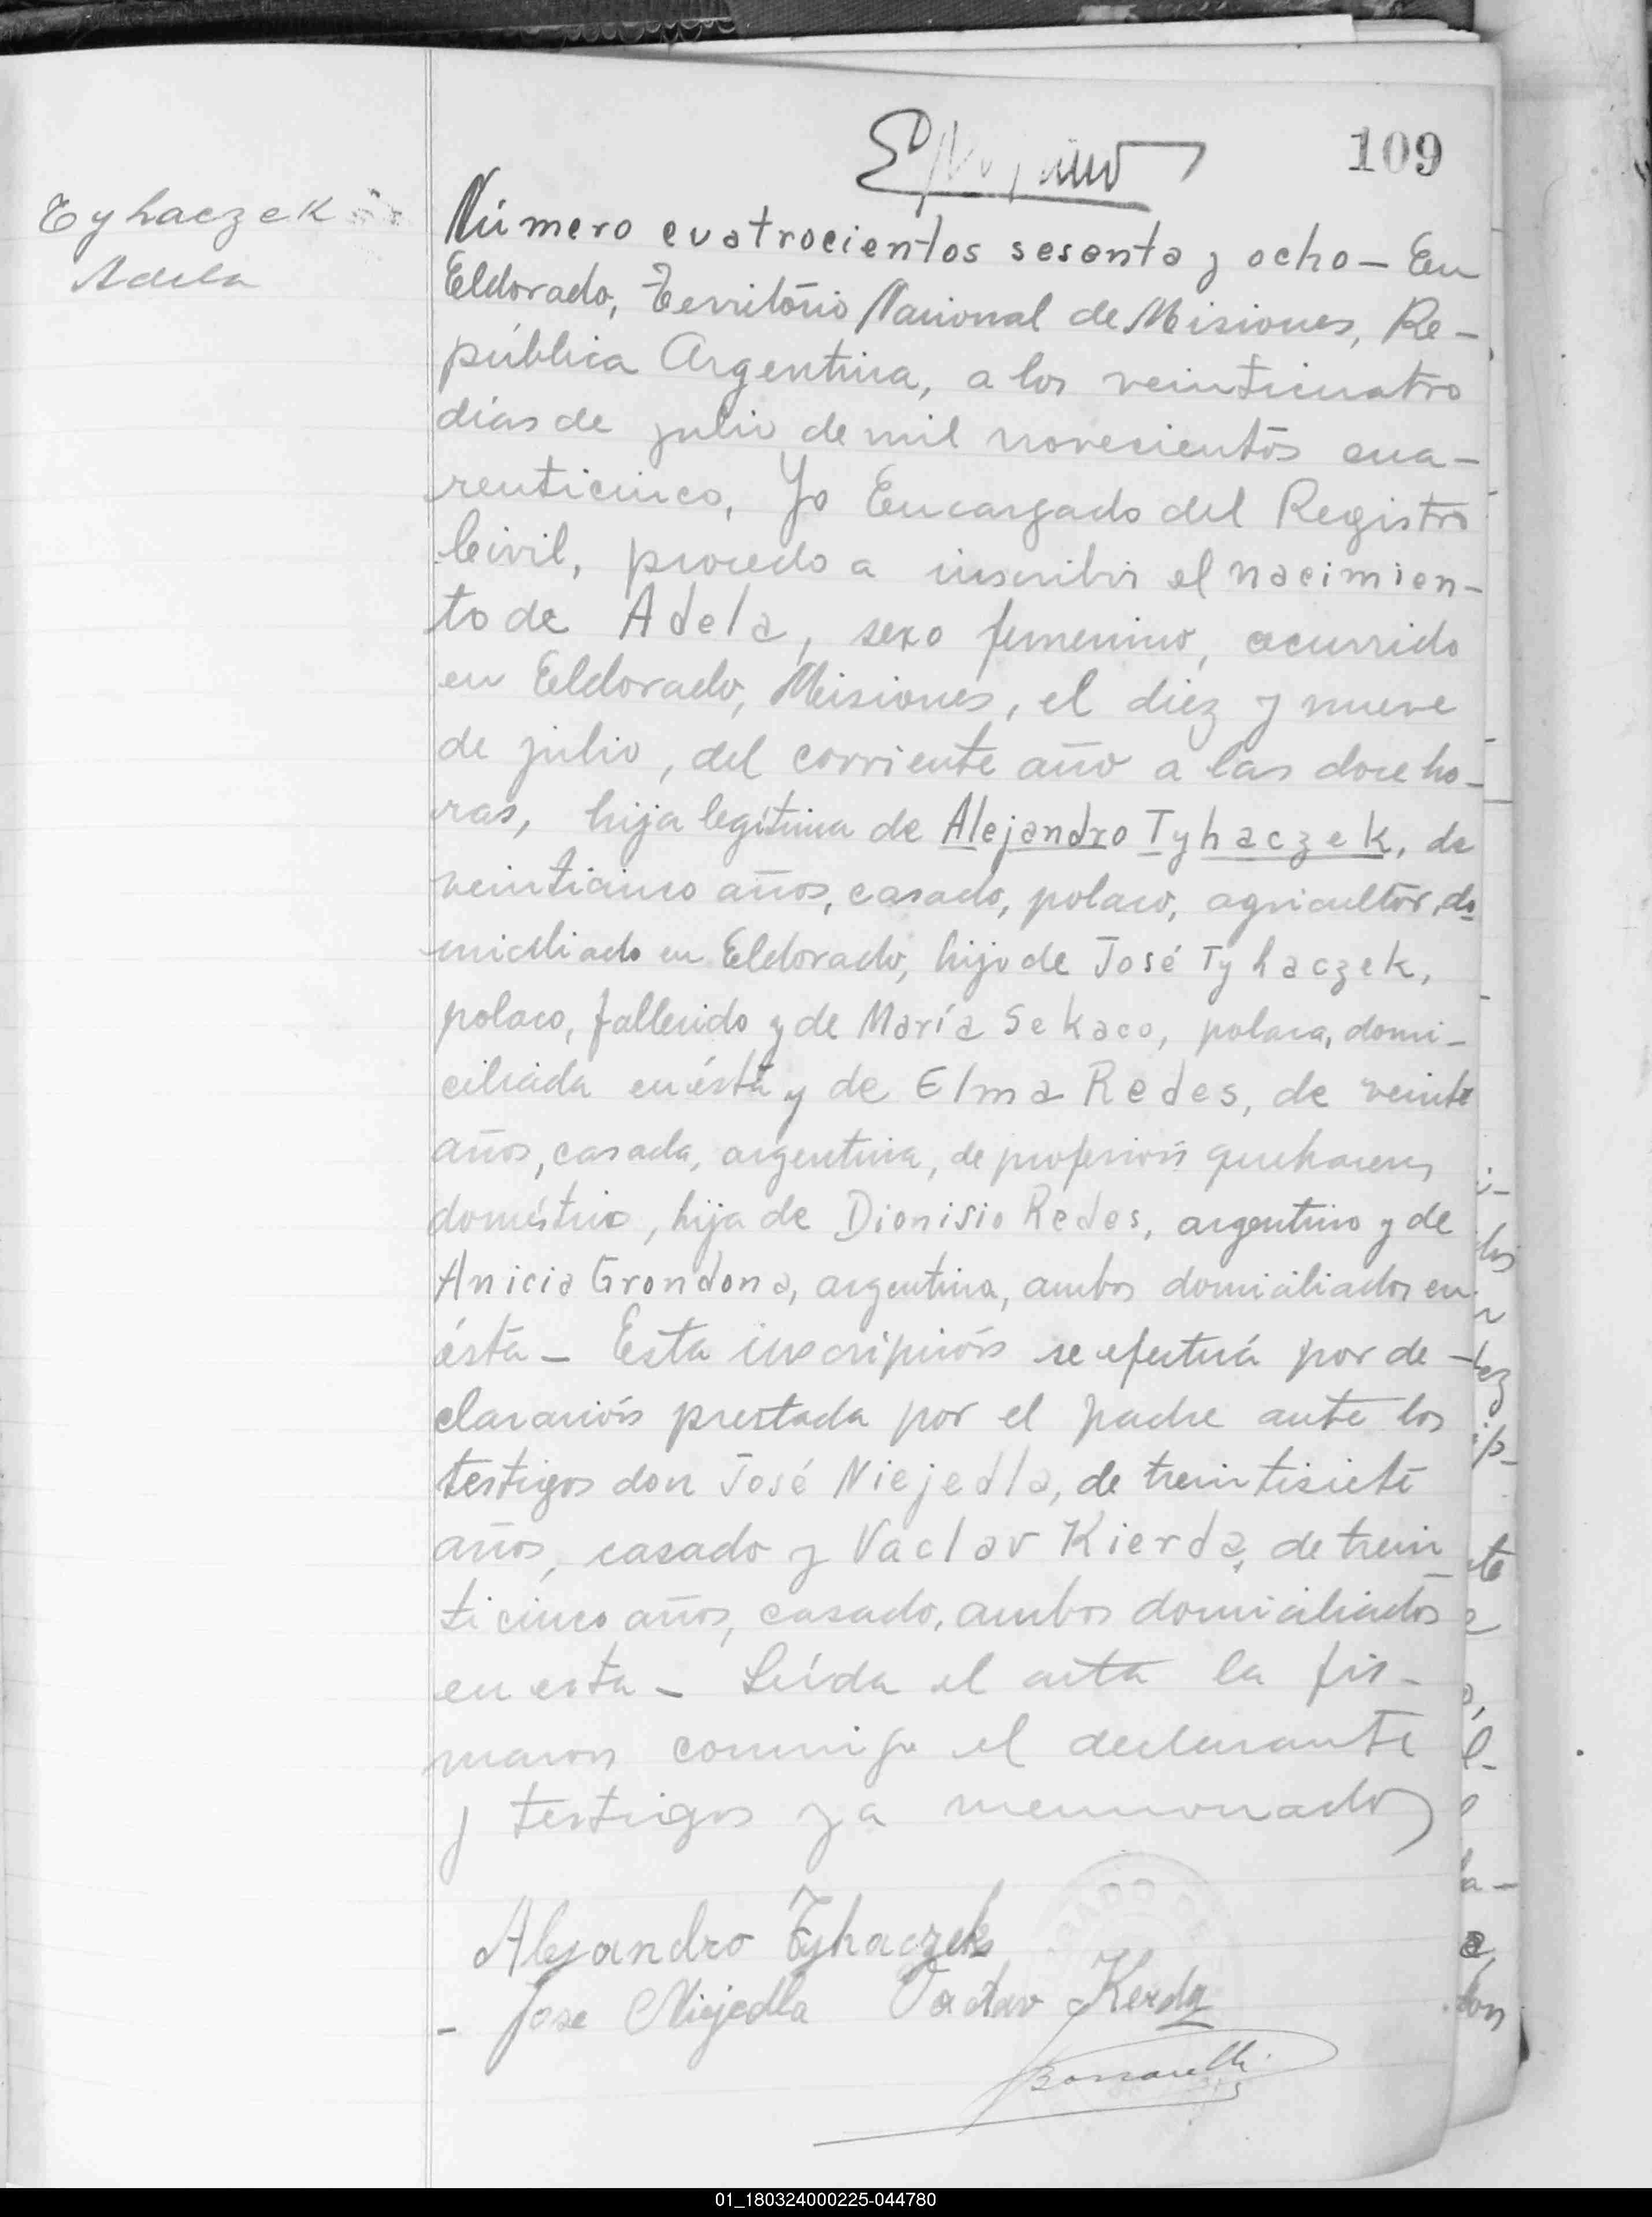 109
Tyhaczek
Adela
Número cuatrocientos sesenta y ocho - En
Eldorado, Territorio Nacional de Misiones, Re-
pública Argentina, a los veinticuatro
días de julio de mil novecientos cua-
renticinco, Yo Encargado del Registro
Civil, procedo a inscribir el nacimien-
to de Adela, sexo femenino, ocurrido
en Eldorado, Misiones, el diez y nueve
de julio, del corriente año a las doce ho-
ras, hija legítima de Alejandro Tyhaczek, de
veinticinco años, casado, polaco, agricultor, do
miciliado en Eldorado, hijo de José Tyhaczek,
polaco, fallecido y de María Sekaco, polaca, domi-
ciliada en ésta y de Elma Redes, de veinte
años, casada, argentina, de profesión quehaceres
doméstico, hija de Dionisio Redes, argentino y de
Anicia Grondona, argentina, ambos domiciliados en
ésta - Esta inscripción se efectuá por de-
claración prestada por el padre ante los
testigos don José Niejedla, de treintisiete
años, casado y Vaclav Kierda, de trein
ticinco años, casado, ambos domiciliados
en esta - Leída el acta la fir-
maron conmigo el declarante
y testigos ya mencionados
Alejandro Tyhaczek
- Jose Niejedla Vaclav Kerda
01_180324000225-044780